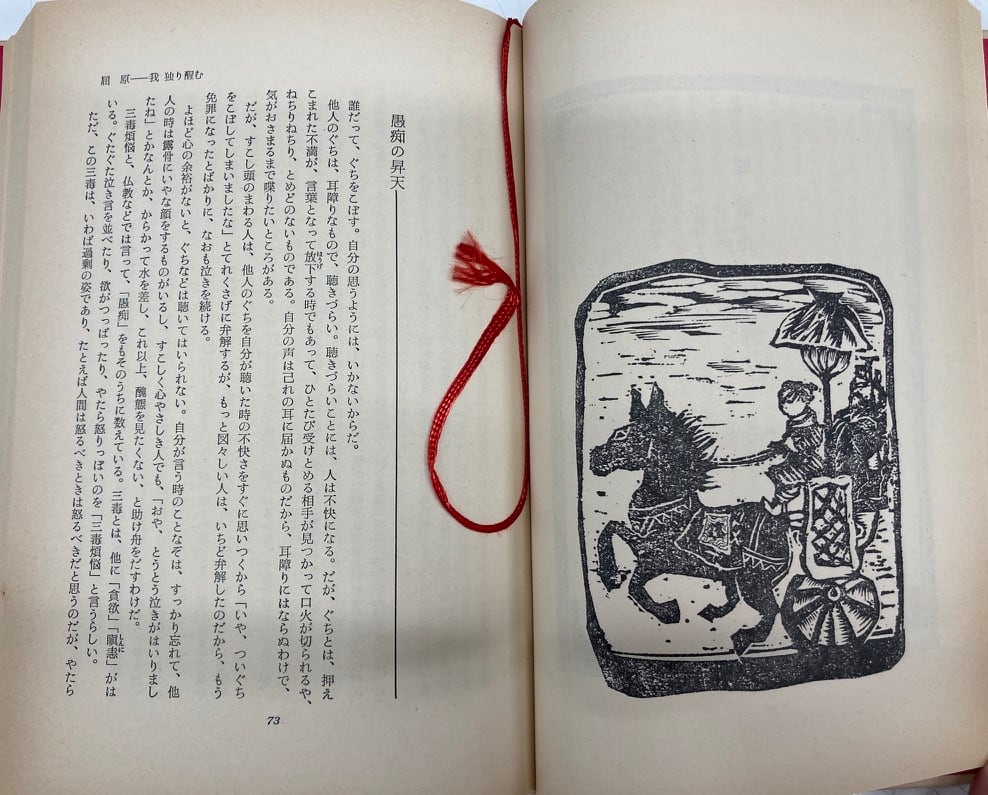 屈 原──我 独り醒む
愚痴の昇天
誰だって、ぐちをこぼす。自分の思うようには、いかないからだ。
他人のぐちは、耳障りなもので、聴きづらい。聴きづらいことには、人は不快になる。だが、ぐちとは、押え
こまれた不満が、言葉となって放下する時でもあって、ひとたび受けとめる相手が見つかって口火が切られるや、
ほうげ
ねちりねちり、とめどのないものである。自分の声は己れの耳に届かぬものだから、耳障りにはならぬわけで、
気がおさまるまで喋りたいところがある。
だが、すこし頭のまわる人は、他人のぐちを自分が聴いた時の不快さをすぐに思いつくから「いや、ついぐち
をこぼしてしまいましたな」とてれくさげに弁解するが、もっと図々しい人は、いちど弁解したのだから、もう
免罪になったとばかりに、なおも泣きを続ける。
よほど心の余裕がないと、ぐちなどは聴いてはいられない。自分が言う時のことなぞは、すっかり忘れて、他
人の時は露骨にいやな顔をするものがいるし、すこしく心やさしき人でも、「おや、とうとう泣きがはいりまし
たね」とかなんとか、からかって水を差し、これ以上、醜態を見たくない、と助け舟をだすわけだ。
三毒煩悩と、仏教などでは言って、「愚痴」をもそのうちに数えている。三毒とは、他に「貪欲」「瞋恚」がは
しんに
いる。ぐたぐた泣き言を並べたり、欲がつっぱったり、やたら怒りっぽいのを「三毒煩悩」と言うらしい。
ただ、この三毒は、いわば過剰の姿であり、たとえば人間は怒るべきときは怒るべきだと思うのだが、やたら
73